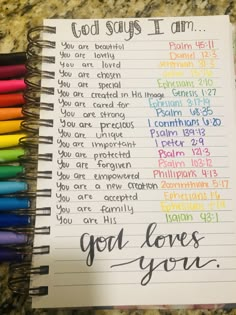 God says I am...
You are beautiful Psalm 45:11
You are lovely Daniel 12:3
You are loved Jeremiah 31:3
You are chosen
You are special Ephesians 2:10
You are created in His Image Genesis 1:27
You are cared for Ephesians 3:17-19
You are strong Psalm 68:35
You are precious 1 Corinthians 6:20
You are unique Psalm 139:13
You are important 1 Peter 2:9
You are protected Psalm 121:3
You are forgiven Psalm 103:12
You are empowered Philippians 4:13
You are a new creation 2 Corinthians 5:17
You are accepted Ephesians 1:6
You are family Ephesians 2:19
You are His Isaiah 43:1
god loves
you.